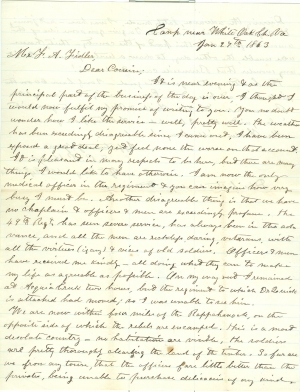 Camp near White Oak Ch. Va
Jan 27th 1863
Mrs F. A. Fiedler,
Dear Cousin,
It is near evening & as the
principal part of the business of the day is over, I thought I
would now fulfil my promise of writing to you. You no doubt
wonder how I like the service – well, pretty well. The weather
has been exceedingly disagreeable since I came out, I have been
exposed a great deal, yet feel none the worse on that account.
It is pleasant in many respects to be here, but there are many
things I would like to have otherwise. I am now the only
medical officer in the regiment & you can imagine how very
busy I must be. Another disagreeable thing is that we have
no Chaplain & officers & men are exceedingly profane. The
Regt. has seen severe service, has always been in the ad
vance, and all the men are veterans, with
all the virtues & vices of old soldiers. Officers & men
have received me kindly – all doing what they can to make
my life as agreeable as possible. On my way out I remained
at two hours, but the regiment to which
is attached had moved, so I was unable to see him.
We are now within four miles of the Rappahannock, on the
opposite side of which the rebels are encamped. This is a most
desolate country – no habitations are visible, the soldiers
are pretty thoroughly cleaning the land of the timber. So far are
we from any town, that the officers fare little better than the
privates, being unable to purchase delicacies of any kind.